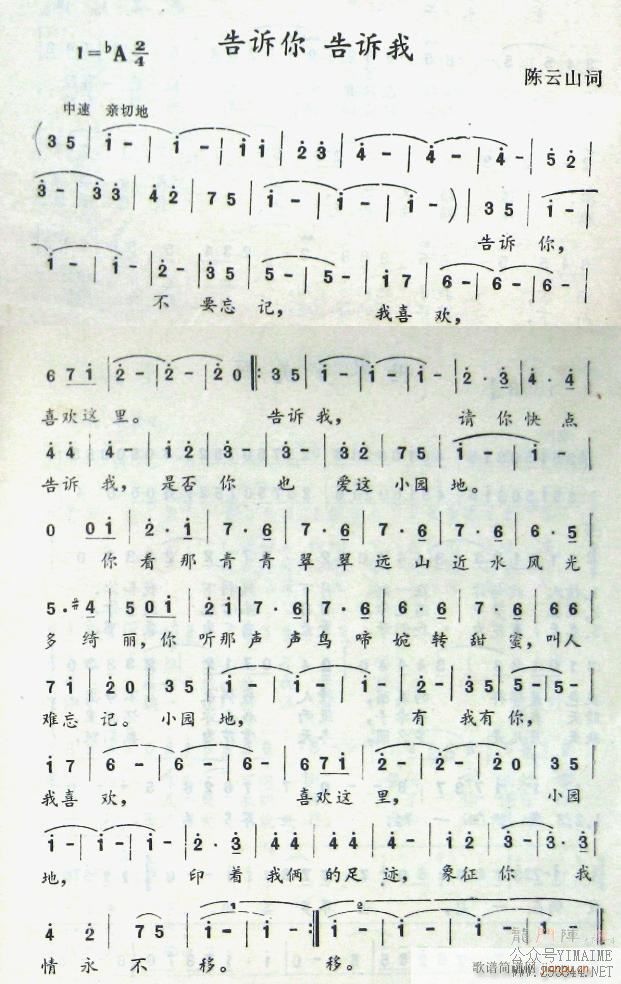 告诉你 告诉我
1=♭A 2/4
陈云山词
中速 亲切地
( 3 5 | i - | i - | i i | 2 3 | 4 - | 4 - | 4 - | 5 2 |
3 - | 3 3 | 4 2 | 7 5 | i - | i - | i - ) | 3 5 | i - |
告诉 你,
i - | i - | 2 - | 3 5 | 5 - | 5 - | i 7 | 6 - | 6 - | 6 - |
不 要忘 记, 我喜 欢,
6 7 i | 2 - | 2 - | 2 0 |: 3 5 | i - | i - | i - | 2 · 3 | 4 · 4 |
喜欢这 里。 告诉 我, 请 你快 点
4 4 | 4 - | i 2 | 3 - | 3 - | 3 2 | 7 5 | i - | i - |
告诉 我, 是否 你 也 爱这 小园 地。
0 0 i | 2 · i | 7 · 6 | 7 · 6 | 7 · 6 | 7 · 6 | 6 · 5 |
你 看 那 青 青 翠 翠 远 山 近 水 风 光
5 · #4 | 5 0 i | 2 i | 7 · 6 | 7 · 6 | 7 · 6 | 7 · 6 | 6 6 |
多 绮 丽, 你 听那 声 声 鸟 啼 婉 转 甜 蜜, 叫人
7 i | 2 0 | 3 5 | i - | i - | i - | 2 - | 3 5 | 5 - | 5 - |
难忘 记。 小园 地, 有 我有 你,
i 7 | 6 - | 6 - | 6 - | 6 7 i | 2 - | 2 - | 2 - | 3 5 |
我喜 欢, 喜欢这 里, 小园
i - | i - | i - | 2 · 3 | 4 4 | 4 4 | 4 - | i 2 | 3 - | 3 · 3 |
地, 印 着 我俩 的足 迹, 象征 你 我
4 2 | 7 5 | i - | i - :| i - | i - | i - ‖
情 永 不 移。 移。
公众号YIMAIME
歌谱简谱网